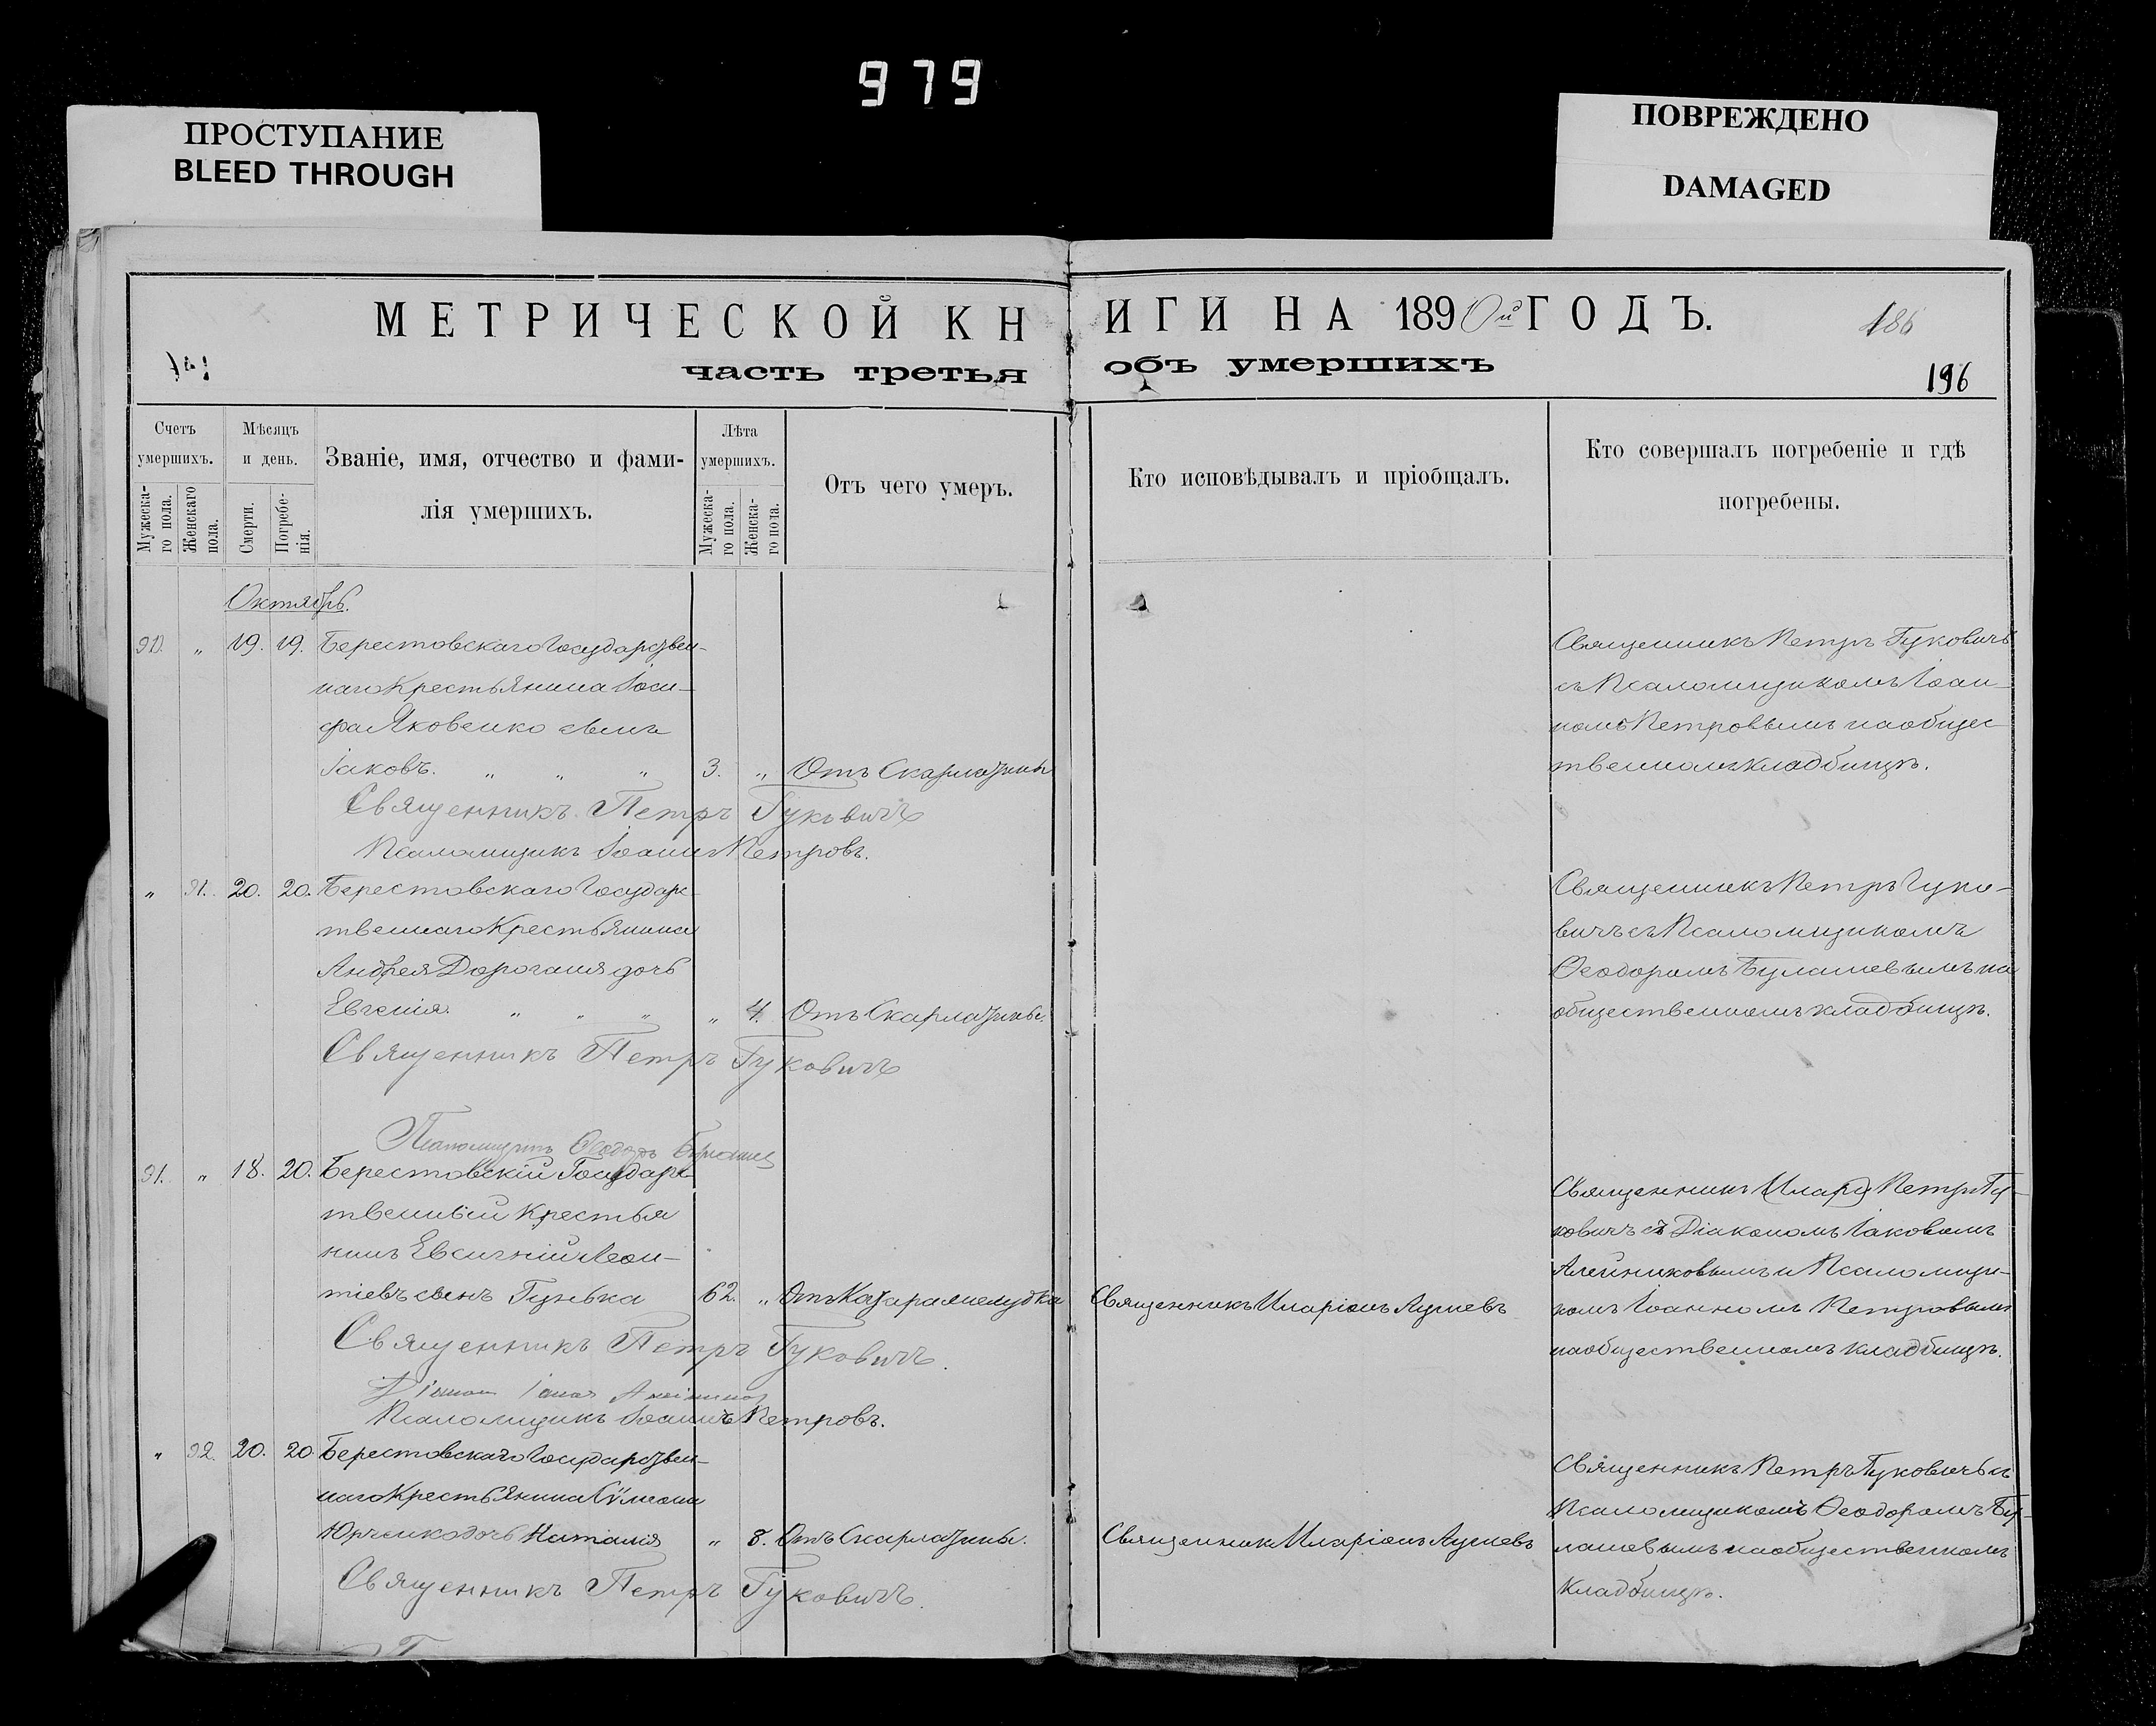 979
ПРОСТУПАНИЕ
BLEED THROUGH
ПОВРЕЖДЕНО
DAMAGED
МЕТРИЧЕСКОЙ КН
ИГИ НА 1890й ГОДЪ.
186
часть третья
объ умершихъ
196
Счетъ умершихъ.
Мужеска-го пола.
Женскаго пола.
Мѣсяцъ и день.
Смерти.
Погребе-нія.
Званіе, имя, отчество и фами-
лія умершихъ.
Лѣта умершихъ.
Мужеска-го пола.
Женска-го пола.
Отъ чего умеръ.
Кто исповѣдывалъ и пріобщалъ.
Кто совершалъ погребеніе и гдѣ
погребены.
Октябрь.
90. „ 19. 19. Берестовскаго Государствен-
наго Крестьянина Іоси-
фа Яковенко сынъ
Іаковъ. „ „ „ 3. „ Отъ Скарлатины
Священникъ Петръ Гуковичъ
съ Псаломщикомъ Іоан-
номъ Петровымъ на общес
твенномъ кладбищѣ.
Священникъ Петръ Гуковичъ
Псаломщикъ Іоаннъ Петровъ.
„ 91. 20. 20. Берестовскаго Государс-
твеннаго Крестьянина
Андрея Дороганя дочь
Евгенія. „ „ „ „ 4. Отъ Скарлатины.
Священникъ Петръ Гуко-
вичъ съ Псаломщикомъ
Ѳеодоромъ Булашевымъ на
общественномъ кладбищѣ.
Священникъ Петръ Гуковичъ
Псаломщикъ Ѳеодоръ
91. „ 18. 20. Берестовскій Государс-
твенный Крестья
нинъ Евсигній Леон-
тіевъ сынъ Гунька 62. „ Отъ Катара желудка
Священникъ Иларіонъ Лушевъ
Священникъ Петръ Гу-
ковичъ съ Діакономъ Іаковомъ
Алейниковымъ и Псаломщи-
комъ Іоанномъ Петровымъ
на общественномъ кладбищѣ.
Священникъ Петръ Гуковичъ.
Псаломщикъ Іоаннъ Петровъ.
„ 92. 20. 20. Берестовскаго Государствен-
наго Крестьянина Сѵмеона
Юрченко дочь Наталія „ 8. Отъ Скарлатины.
Священник Иларіонъ Лушевъ
Священникъ Петръ Гуковичъ съ
Псаломщикомъ Ѳеодоромъ Бу-
лашевымъ на общественномъ
кладбищѣ.
Священникъ Петръ Гуковичъ.